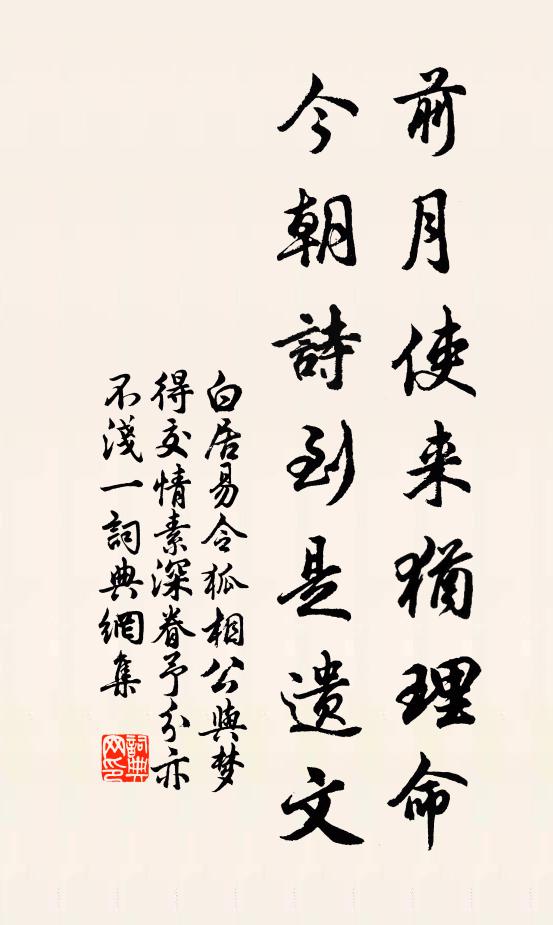 前月使来猶理命
今朝詩到是遺文
白居易令狐相公與梦
得交情素深眷予分亦
不淺一詞典網集
詞典网印